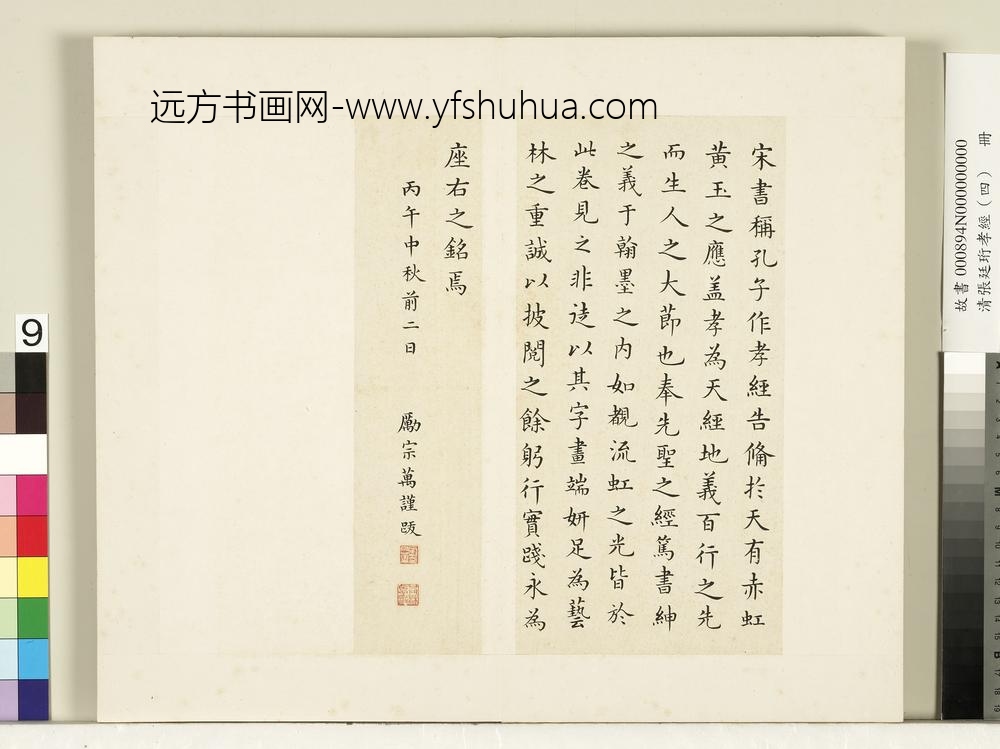 远方书画网-www.yfshuhua.com
宋書稱孔子作孝經告俻於天有赤虹
黃玉之應盖孝為天經地義百行之先
而生人之大節也奉先聖之經篤書紳
之義于翰墨之內如覩流虹之光皆於
此卷見之非徒以其字畫端妍足為藝
林之重誠以披閱之餘躬行實踐永為
座右之銘焉
丙午中秋前二日 勵宗萬謹跋
故書 000894N000000000
清張廷珩孝經（四） 冊
9